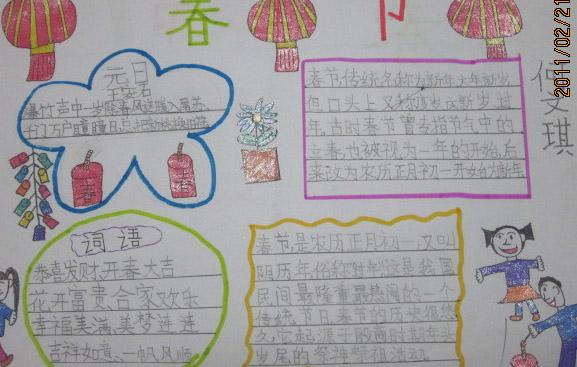 春节
2011/02/21
元日
王安石
爆竹声中一岁除春风送暖入屠苏
千门万户曈曈日总把新桃换旧符
春
春
春节传统名称为新年大年新岁
但口头上又称度岁庆新岁过
年,古时春节曾专指节气中的
立春,也被视为一年的开始,后
来改为农历正月初一开始为新年
文琪
词语
恭喜发财、开春大吉
花开富贵、合家欢乐
幸福美满、美梦连连
吉祥如意、一帆风顺
春节,是农历正月初一,又叫
阴历年,俗称过年,这是我国
民间最隆重最热闹的一个
传统节日。春节的历史很悠
久,它起源于殷商时期年头
岁尾的祭神祭祖活动